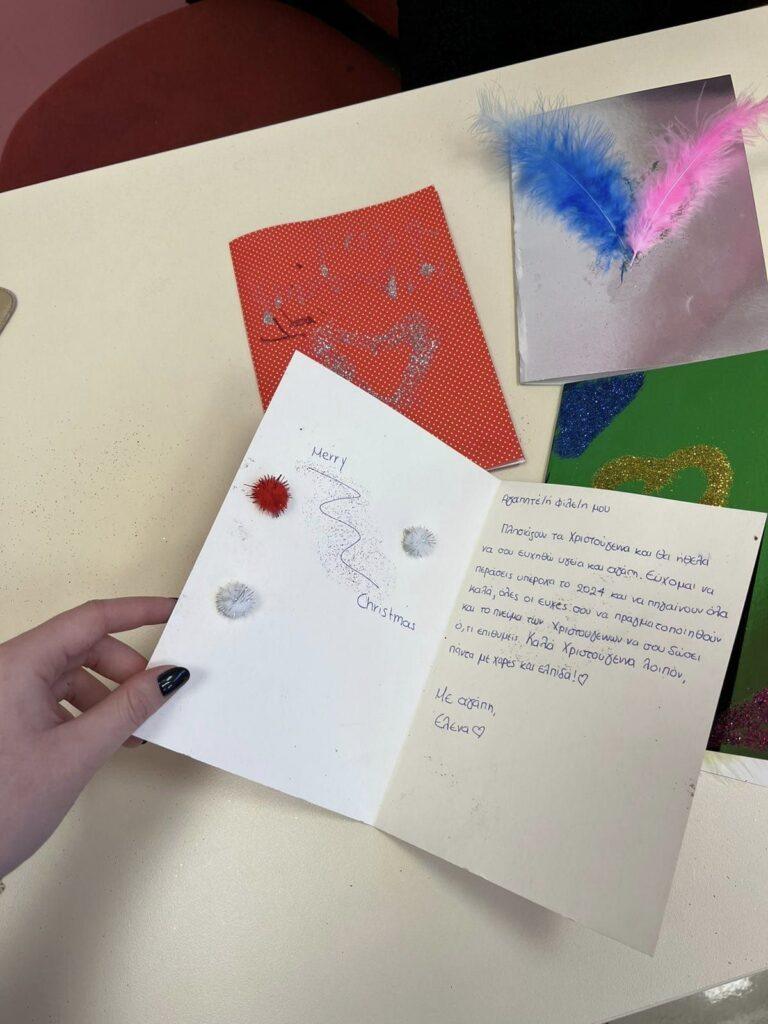 Merry
Christmas
Αγαπητέ/ή φίλε/η μου
Πλησιάζουν τα Χριστούγεννα και θα ήθελα
να σου ευχηθώ υγεία και αγάπη. Εύχομαι να
περάσεις υπέροχα το 2024 και να πηγαίνουν όλα
καλά, όλες οι ευχές σου να πραγματοποιηθούν
και το πνεύμα των Χριστουγέννων να σου δώσει
ό,τι επιθυμείς. Καλά Χριστούγεννα λοιπόν,
πάντα με χαρές και ελπίδα!♡
Με αγάπη,
Έλενα♡